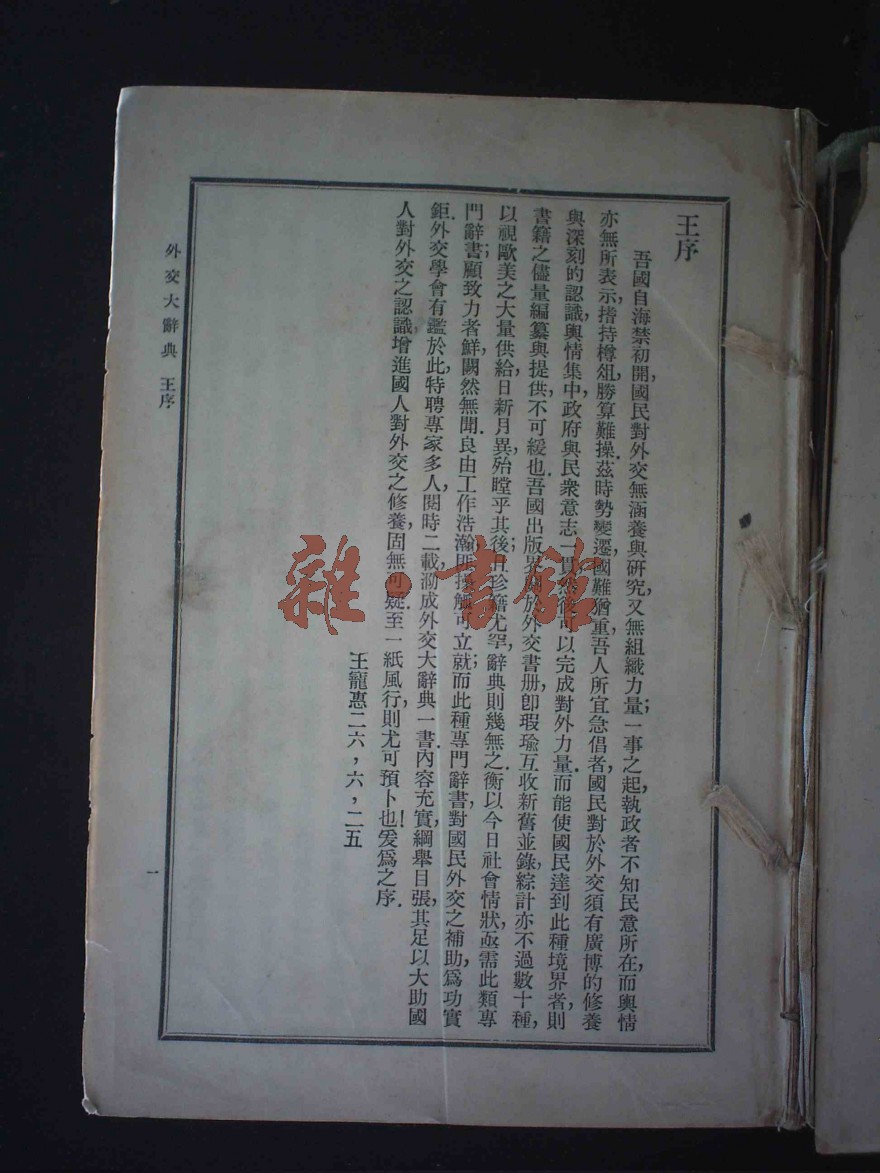 王序
吾國自海禁初開,國民對外交無涵養與研究,又無組織力量;一事之起,執政者不知民意所在,而輿情
亦無所表示,搘持樽俎,勝算難操.茲時勢變遷,國難猶重,吾人所宜急倡者,國民對於外交須有廣博的修養
與深刻的認識,輿情集中,政府與民衆意志一貫,然後可以完成對外力量.而能使國民達到此種境界者,則
書籍之儘量編纂與提供,不可緩也.吾國出版界關於外交書册,卽瑕瑜互收,新舊並錄,綜計亦不過數十種,
以視歐美之大量供給,日新月異,殆瞠乎其後;且珍籍尤罕,辭典則幾無之.衡以今日社會情狀,亟需此類專
門辭書;顧致力者鮮,闕然無聞.良由工作浩瀚,匪操觚可立就;而此種專門辭書,對國民外交之補助,爲功實
鉅.外交學會有鑑於此,特聘專家多人,閱時二載,泐成外交大辭典一書,內容充實,綱舉目張,其足以大助國
人對外交之認識,增進國人對外交之修養,固無可疑.至一紙風行,則尤可預卜也!爰爲之序.
王寵惠二六,六,二五
外交大辭典 王序
一
雜·書館